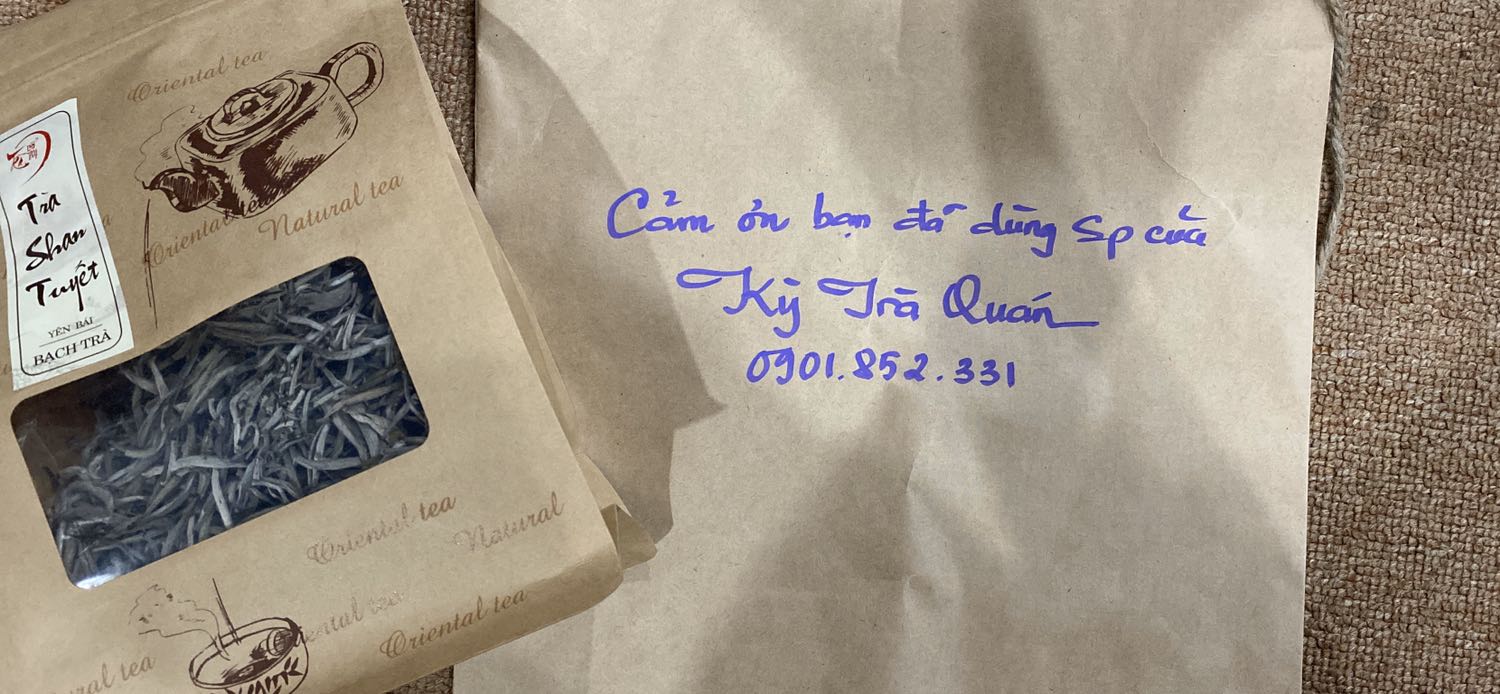 Oriental tea
Oriental tea
Natural tea
Trà
Shan
Tuyết
YÊN BÁI
BẠCH TRÀ
Oriental tea
Natural
Oriental tea
tea
Cảm ơn bạn đã dùng Sp của
Kỳ Trà Quán
0901.852.331